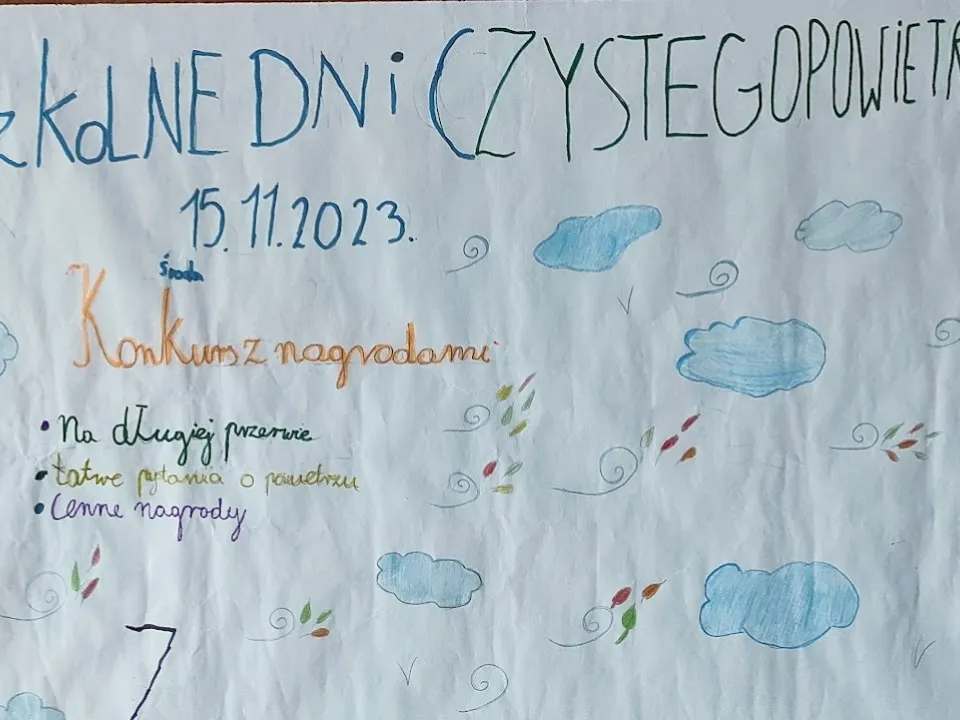 zKOLNE DNi CZYSTEGO POWiETR
15.11.2023.
środa
Konkurs z nagrodami
• Na długiej przerwie
• Łatwe pytania o powietrzu
• Cenne nagrody
7